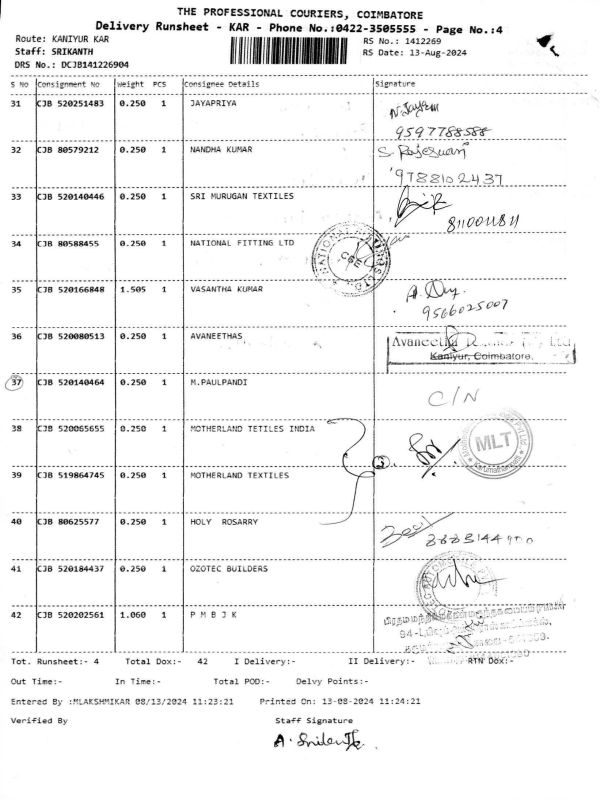 THE PROFESSIONAL COURIERS, COIMBATORE
Delivery Runsheet - KAR - Phone No.:0422-3505555 - Page No.:4
Route: KANIYUR KAR
RS No.: 1412269
Staff: SRIKANTH
RS Date: 13-Aug-2024
DRS No.: DCJB141226904
S No Consignment No Weight PCS Consignee Details Signature
31 CJB 520251483 0.250 1 JAYAPRIYA
9597788588
32 CJB 80579212 0.250 1 NANDHA KUMAR S. Rajeswari
9788102437
33 CJB 520140446 0.250 1 SRI MURUGAN TEXTILES
8110011811
34 CJB 80588455 0.250 1 NATIONAL FITTING LTD
CBE
35 CJB 520166848 1.505 1 VASANTHA KUMAR
9566025007
36 CJB 520080513 0.250 1 AVANEETHAS
Kaniyur, Coimbatore.
37 CJB 520140464 0.250 1 M.PAULPANDI C/N
38 CJB 520065655 0.250 1 MOTHERLAND TETILES INDIA
3 MLT
39 CJB 519864745 0.250 1 MOTHERLAND TEXTILES
40 CJB 80625577 0.250 1 HOLY ROSARRY
41 CJB 520184437 0.250 1 OZOTEC BUILDERS
42 CJB 520202561 1.060 1 P M B J K
Tot. Runsheet:- 4 Total Dox:- 42 I Delivery:- II Delivery:- RTN Dox:-
Out Time:- In Time:- Total POD:- Delvy Points:-
Entered By :MLAKSHMIKAR 08/13/2024 11:23:21 Printed On: 13-08-2024 11:24:21
Verified By Staff Signature